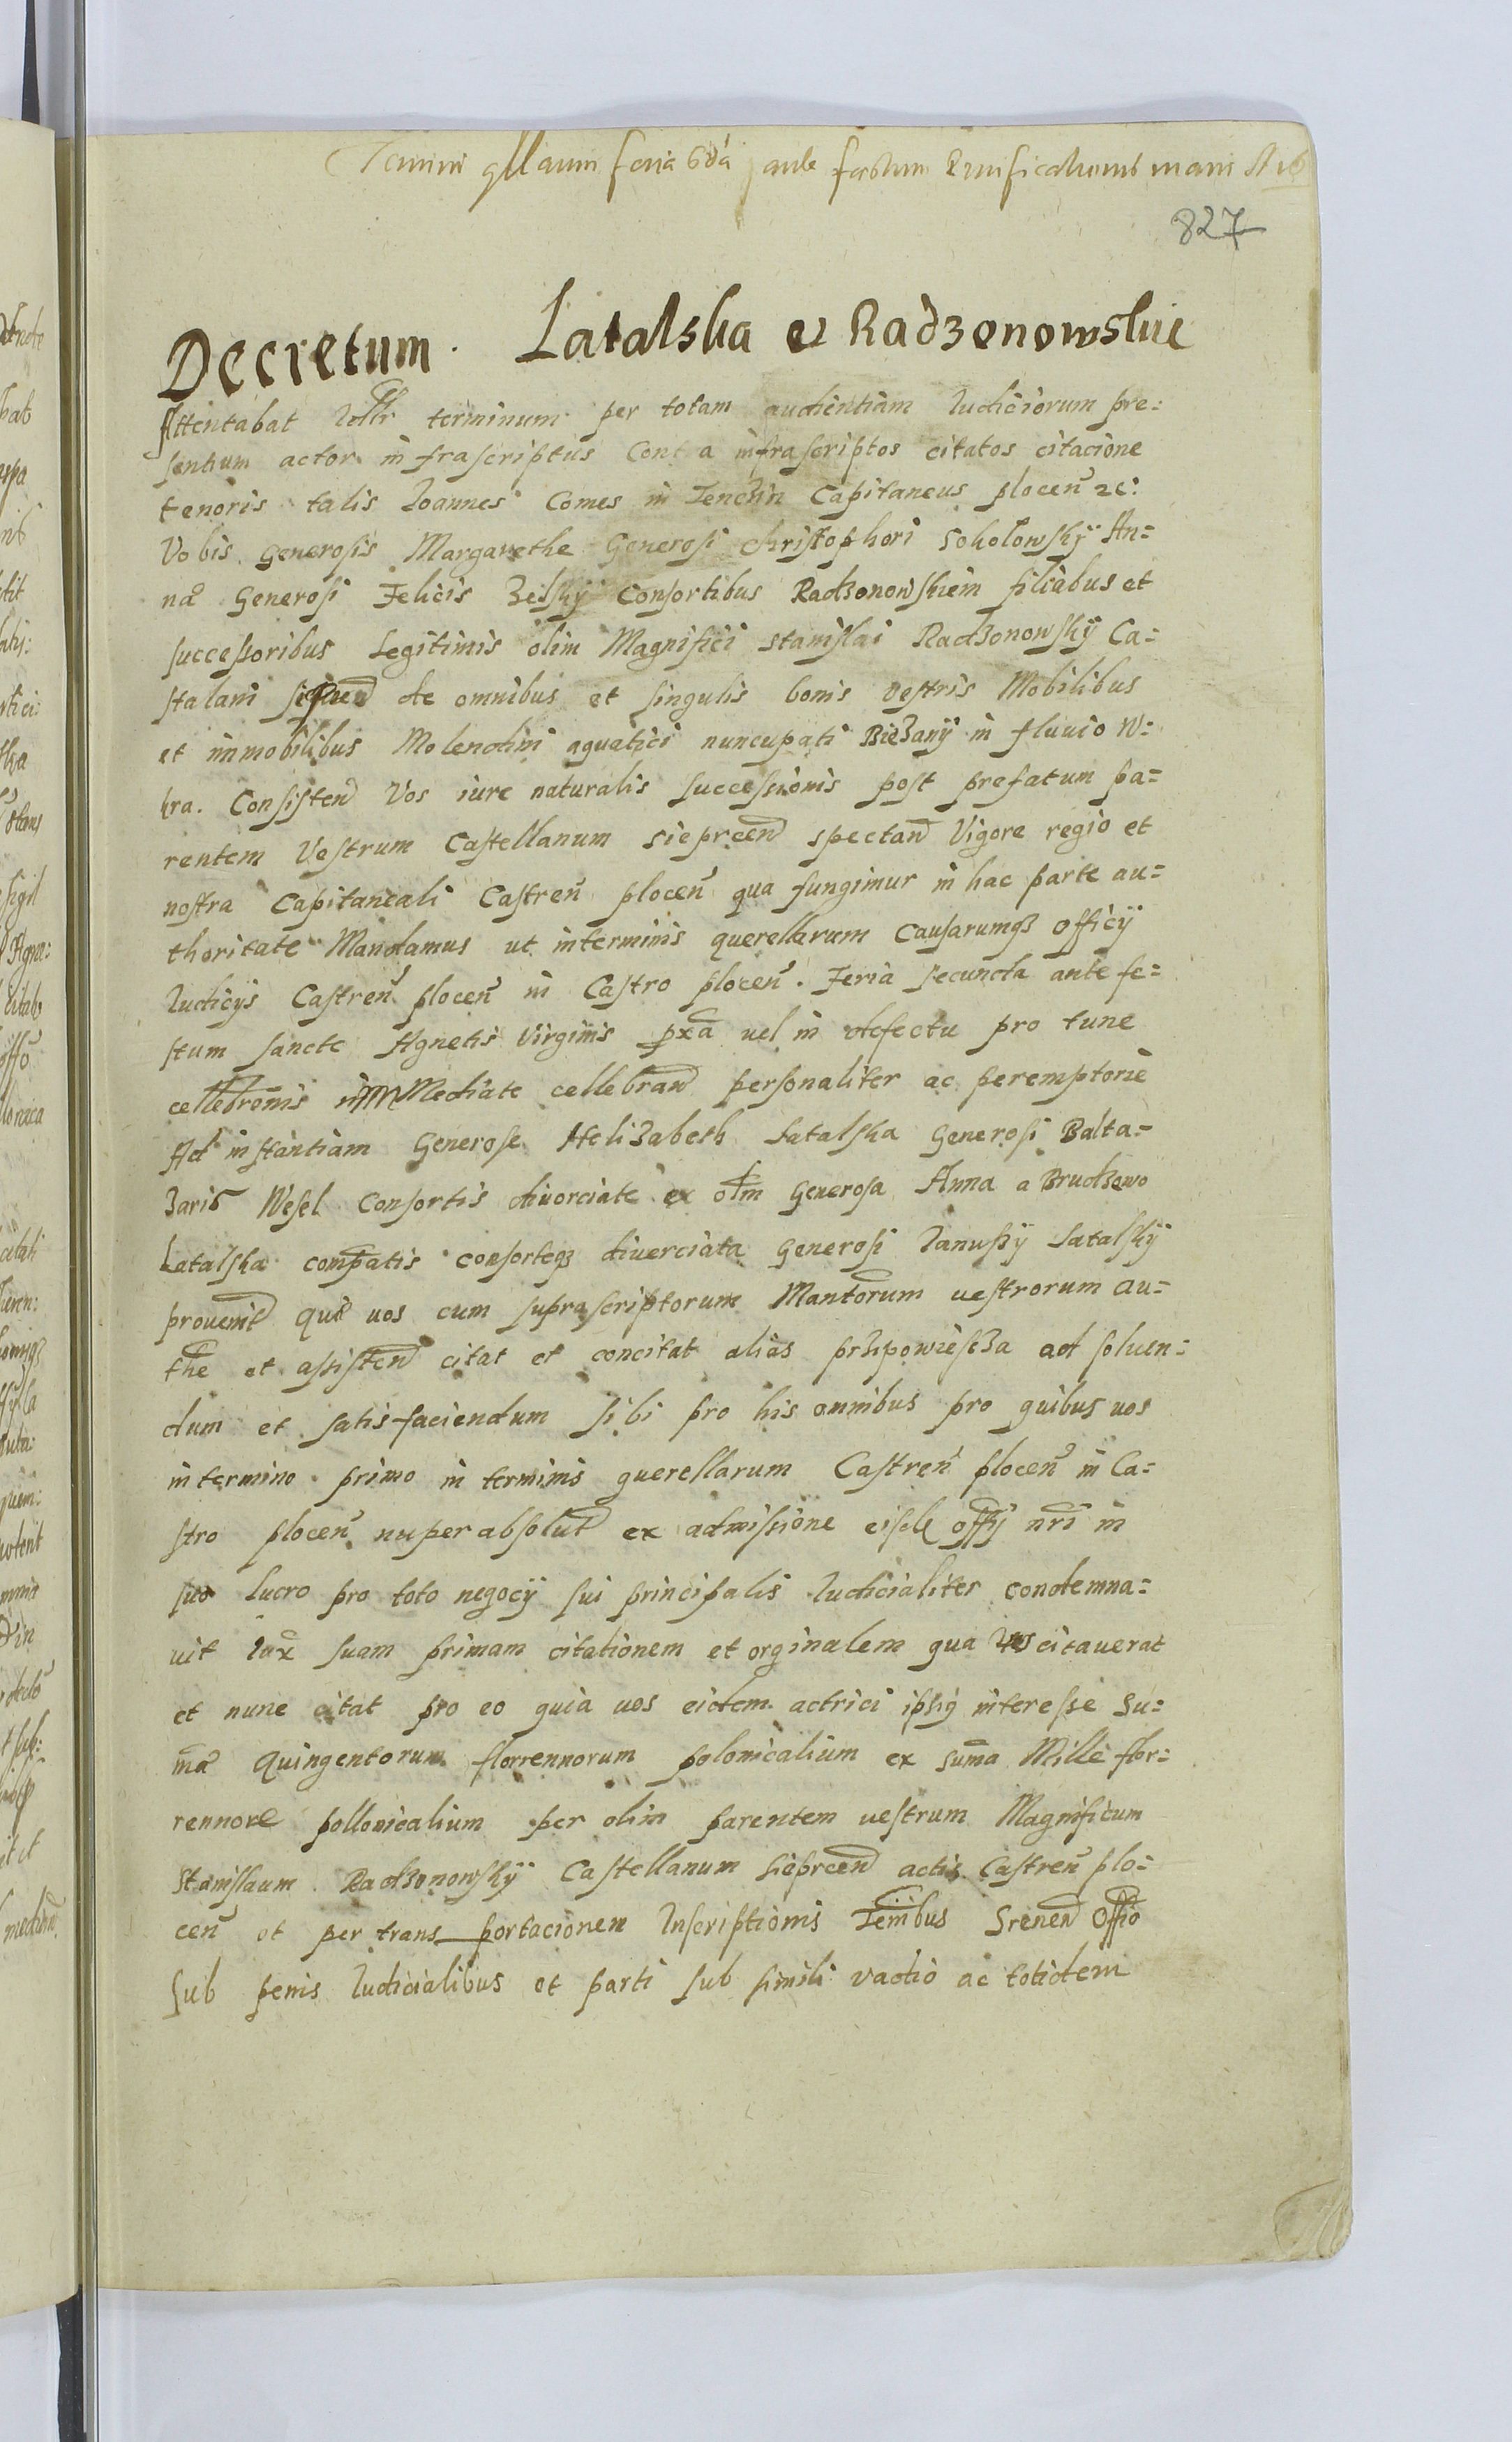 Termini qllarum feria 6ta ante festum Purificationis marie A 16
827
Decretum. Latalska et Radzonowskie
Attentabat terminum per totam audientiam Iudiciorum pre=
sentium actor in frascriptus Contra infrascriptos citatos citacione
tenoris talis Ioannes Comes in Tenchin Capitaneus plocen̄ 2c:
Vobis generosis Margarethe Generosi christophori Sokolowsky An=
na Generosi Felicis Zelsky Consortibus Radzonowskiem filiabus et
successoribus Legitimis olim Magnifici stanislai Radzonowsky Ca=
stalani de omnibus et singulis bonis vestris Mobilibus
et immobilibus Molendini aquatici nuncupati Biezany in fluuio W=
kra. Consisten Vos iure naturalis successionis post prefatum pa=
rentem Vestrum Castellanum siepreen spectan Vigore regio et
nostra Capitaneali Castren̄ plocen̄ qua fungimur in hac parte au=
thoritate Mandamus ut interminis querellarum Causarumq3 officÿ
Iudicÿs Castren̄ plocen̄ in Castro plocen̄. Feria secunda ante fe=
stum sancte Agnetis Virginis pxa uel in defectu pro tunc
cellebrōnis immMediate cellebran personaliter ac peremptorie
Ad instantiam Generose Helizabeth Latalska Generosi Balta=
zaris Wesel Consortis diuorciate ex olm Generosa Anna a Brudzewo
Latalska compatis consorteq3 diuerciata Generosi Ianussy Latalsky
prouenit que uos cum suprascriptorum Mantorum uestrorum au=
the et assisten citat et concitat alias przipowiescza ad soluen=
dum et satis-faciendum sibi pro his omnibus pro quibus uos
in termino primo in terminis querellarum Castren̄ plocen̄ in Ca=
stro plocen̄ nuper absolut ex admissione eisde offÿ nri in
suo Lucro pro toto negocÿ sui principalis Iudicialiter condemna=
uit iux suam primam citationem et orginalem qua vos citauerat
et nunc citat pro eo quia uos eidem actrici ipsiq interesse su=
mā quingentorum florrennorum polonicalium ex sūma Mille flor=
rennore pollonicalium per olim parentem uestrum Magnificum
Stanislaum Radzonowsky Castellanum siepreen actis Castren̄ plo=
cen̄ et per trans portacionem Inscriptionis Temibus Srenen offio
Sub penis Iudicialibus et parti sub simili vadio ac totidem